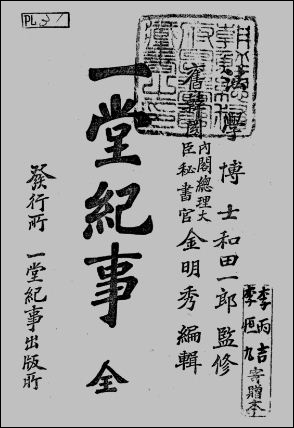 法學博士 和田一郎 監修
舊韓國
內閣總理大
臣秘書官
金明秀 編輯
一堂紀事 全
發行所 一堂紀事出版所
李丙吉
李恒九
寄贈本